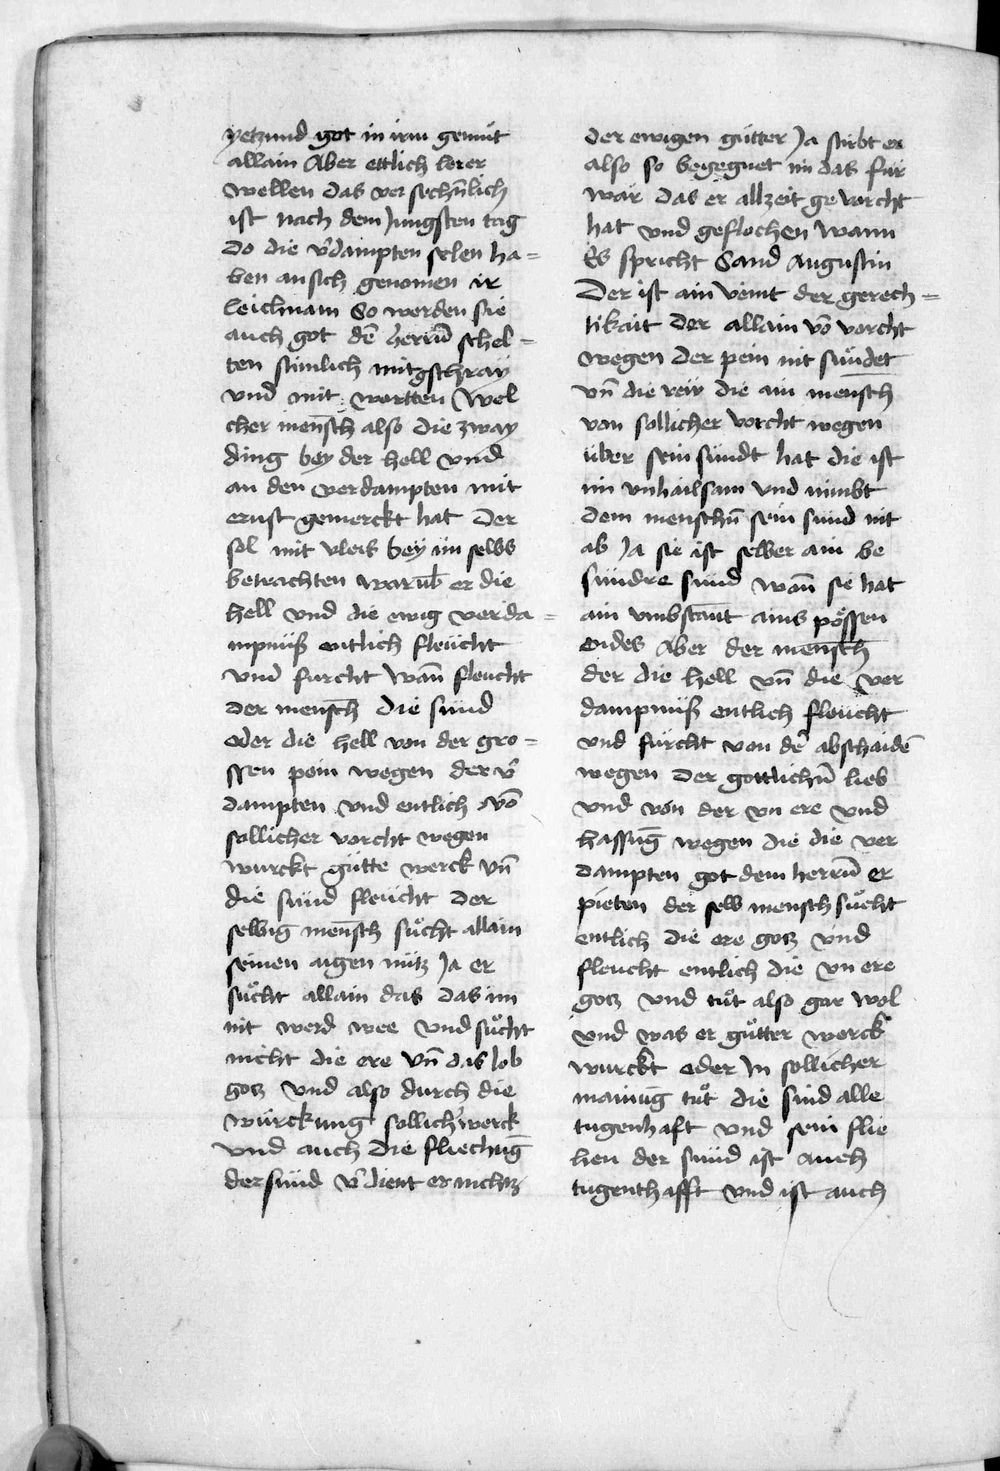 yetzund got in irm gemüt
allain Aber ettlich lerer
wellen das ver sechnlich
ist nach dem Jungsten tag
do die v̄dampten selen ha=
ben an sich genomen ir
leichnam So werden sie
auch got dē herrn̄ schel=
ten stimlich mit gschray
vnd mit wortten Wel
cher mensch also die zway
ding bey der hell vnd
an den verdampten mit
ernst gemerckt hat Der
sol mit vleis bey im selbs
betrachten warūb er die
hell vnd die ewig verda=
mpnüß entlich fleücht
vnd furcht wan̄ fleucht
der mensch die sünd
oder die hell von der gro=
ssen pein wegen der v̄
dampten vnd entlich vō
sollicher vorcht wegen
wurckt gütte werck vn̄
die sünd fleücht Der
selbig mensch sücht allain
seinen aigen nütz Ja er
sücht allain das das im
nit werd wee vnd sücht
nicht die ere vn̄ das lob
gotz vnd also durch die
würckung sollich̄ werck
vnd auch die fliechūg
der sünd v̄dient er nichtz
der ewigen gütter Ja stirbt er
also so begegnet im das für
war das er allzeit gevorcht
hat vnd geflochen Wann
Es spricht Sand Augustin
Der ist ain veint der gerech=
tikait der allain vō vorcht
wegen der pein nit sündet
vn̄ die reiv die ain mensch
von sollicher vorcht wegen
über sein sündt hat die ist
im vnhailsam vnd nimbt
dem menschn̄ sein sünd nit
ab Ja sie ist selber ain be
sundre sünd wan̄ sie hat
ain vmbstant ains pössen
endes Aber der mensch
der die hell vn̄ die ver
dampnüß entlich fleücht
vnd fürcht von dē abschaidē
wegen der gottlichn̄ lieb
vnd von der vn ere vnd
hassūg wegen die die ver
dampten got dem herrn̄ er
pieten der selb mensch sücht
entlich die ere gotz vnd
fleucht entlich die vn ere
gotz vnd tüt also gar wol
vnd was er gütter werck
wurckt oder In sollicher
mainūg tüt die sind alle
tugenhaft vnd sein flie
hen der sünd ist auch
tugenthafft vnd ist auch